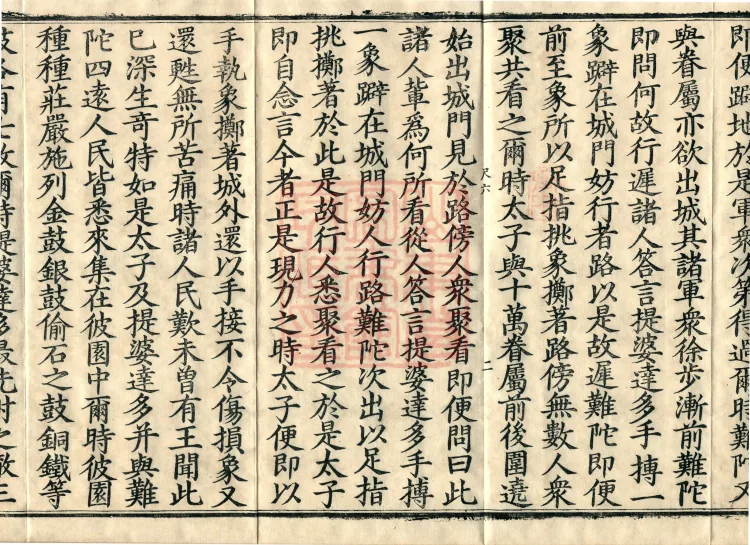 即便躃地於是軍衆次第得過爾時難陀又
與眷屬亦欲出城其諸軍衆徐步漸前難陀
即問何故行遲諸人答言提婆達多手搏一
象躃在城門妨行者路以是故遲難陀即便
前至象所以足指挑象擲著路傍無數人衆
聚共看之爾時太子與十萬眷屬前後圍遶
尺六 二
始出城門見於路傍人衆聚看即便問曰此
諸人輩爲何所看從人答言提婆達多手搏
一象躃在城門妨人行路難陀次出以足指
挑擲著於此是故行人悉聚看之於是太子
即自念言今者正是現力之時太子便即以
手執象擲著城外還以手接不令傷損象又
還甦無所苦痛時諸人民歎未曾有王聞此
已深生奇特如是太子及提婆達多并與難
陀四遠人民皆悉來集在彼園中爾時彼園
種種莊嚴施列金鼓銀鼓偷石之鼓銅鐵等
鼓各有七枚爾時提婆達多最先射之徹三